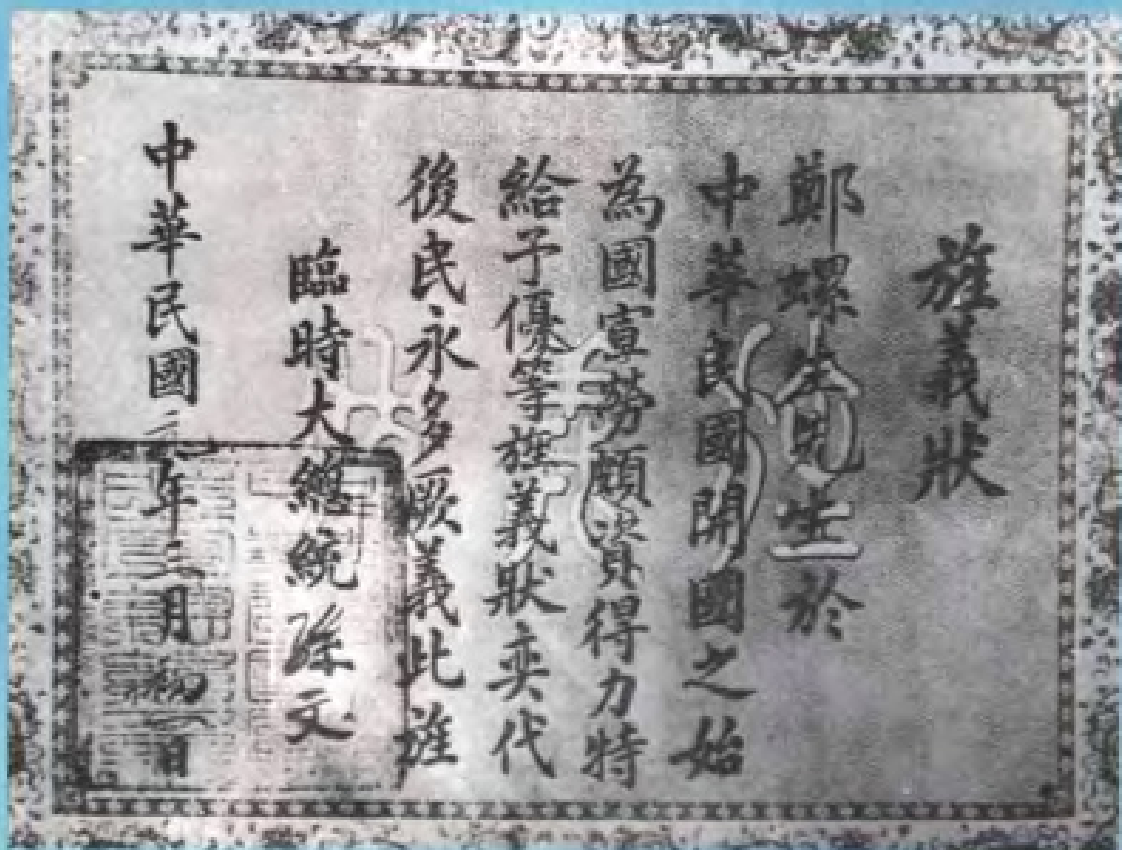 旌義狀
鄭螺生先生於
中華民國開國之始
為國宣勞頗資得力特
給予優等旌義狀奕代
後民永多厥義此旌
臨時大總統孫文
中華民國元年三月初一日